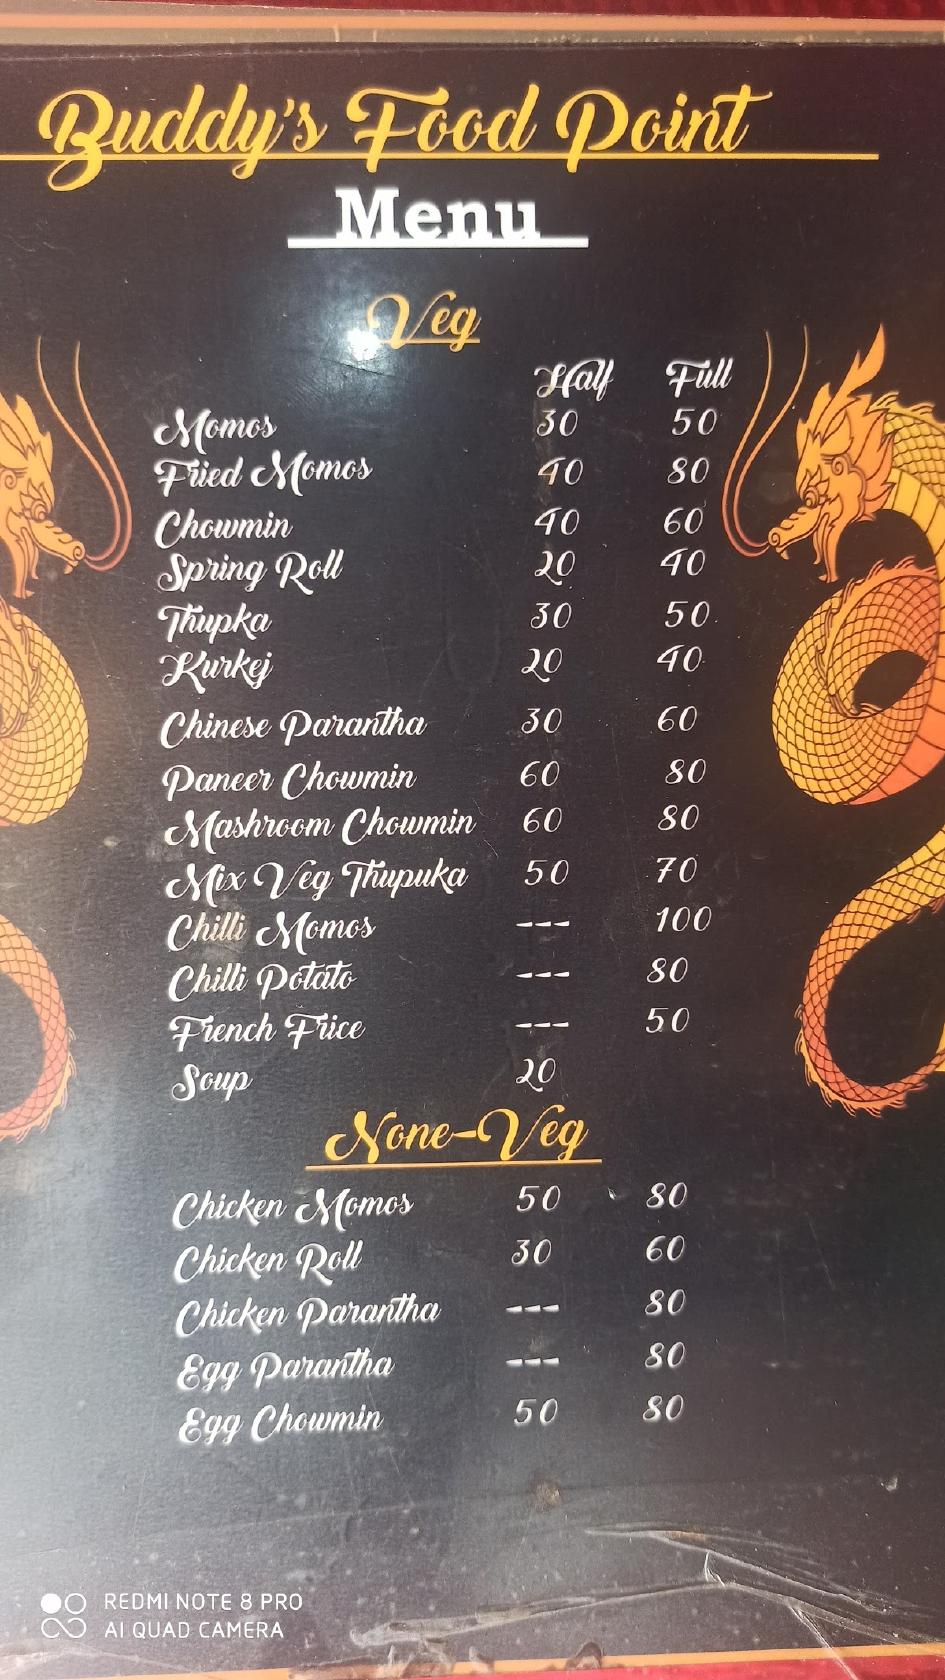 Buddy's Food Point
Menu
Veg
Half Full
Momos 30 50
Fried Momos 40 80
Chowmin 40 60
Spring Roll 20 40
Thupka 30 50
Kurkej 20 40
Chinese Parantha 30 60
Paneer Chowmin 60 80
Mashroom Chowmin 60 80
Mix Veg Thupuka 50 70
Chilli Momos --- 100
Chilli Potato --- 80
French Frice --- 50
Soup 20
None-Veg
Chicken Momos 50 80
Chicken Roll 30 60
Chicken Parantha --- 80
Egg Parantha --- 80
Egg Chowmin 50 80
REDMI NOTE 8 PRO
AI QUAD CAMERA